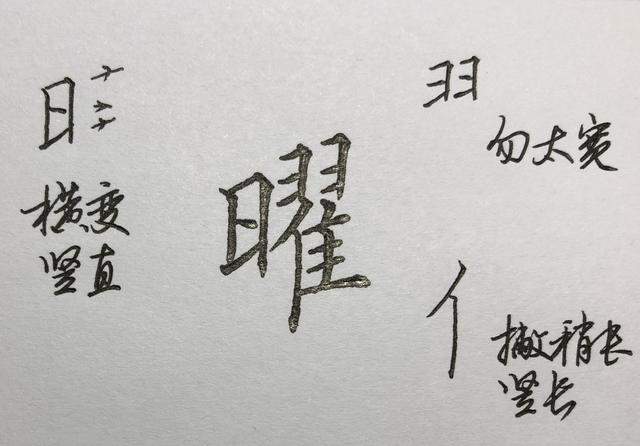 日
横变
竖直
曜
勿太宽
撇稍长
竖长